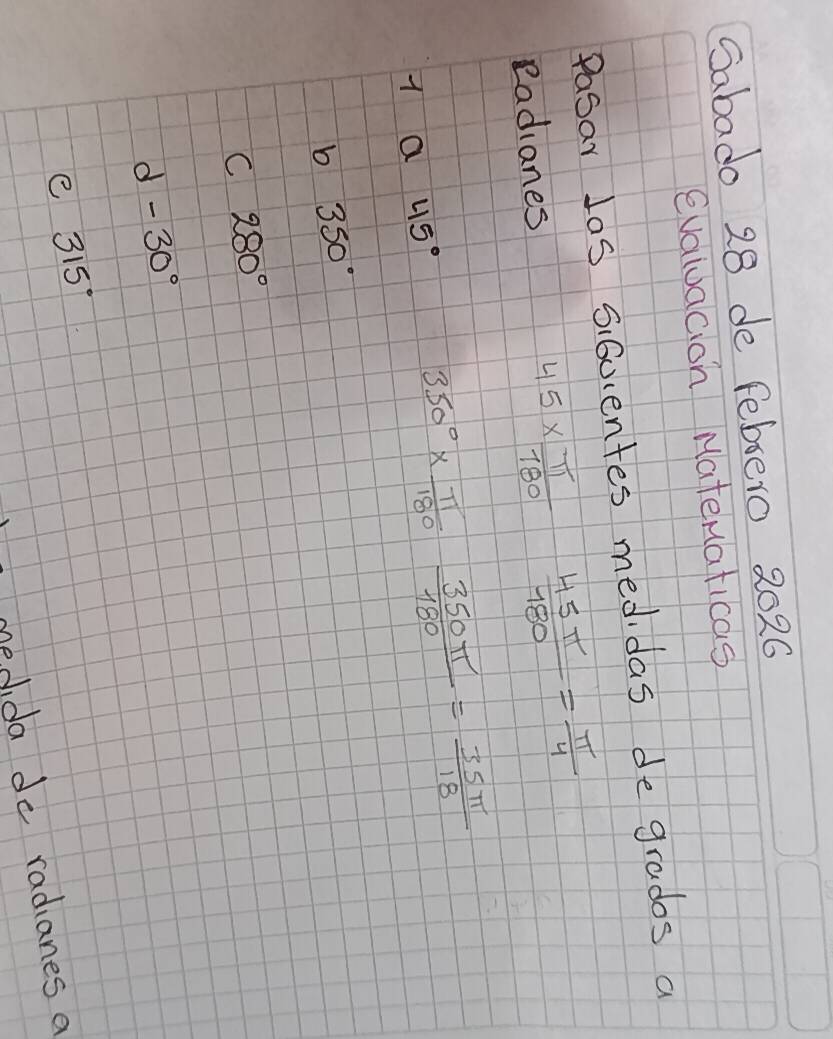 Sabado 28 de febrero 2026
Evaluación Matematicas
Pasar los siguientes medidas de grados a
Radianes
1 a 45° 45 x π/180 45π/180 = π/4
b 350° 350° x π/180 350π/180 = 35π/18
c 280°
d -30°
e 315°
medida de radianes a